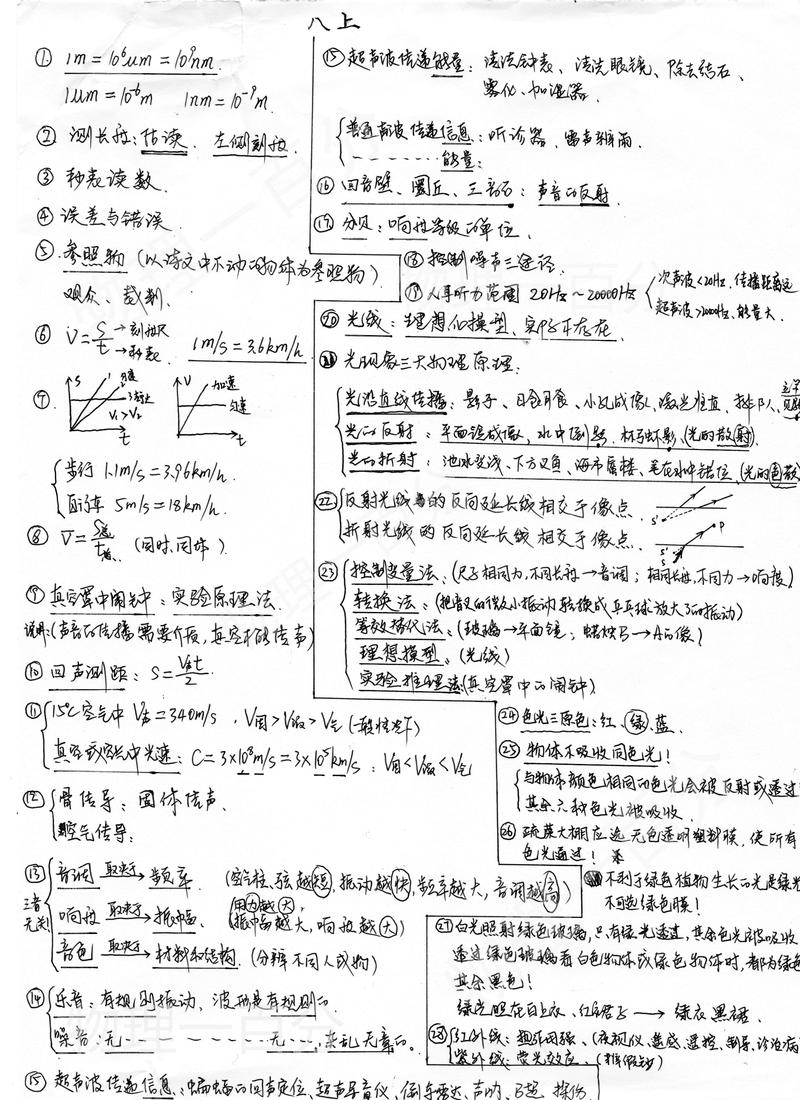 八上
① 1m=10⁶um=10⁹nm.
1um=10⁻⁶m 1nm=10⁻⁹m.
② 测长度:估读. 左侧刻度.
③ 秒表读数.
④ 误差与错误.
⑤ 参照物(以诗文中不动的物体为参照物)
观众、裁判.
⑥ V=S/t →刻度尺 →秒表. 1m/s=3.6km/h
⑦ S t V₁>V₂ V t 加速 匀速
步行 1.1m/s=3.96km/h.
自行车 5m/s=18km/h.
⑧ V̄=S总/t总 (同时、同体).
⑨ 真空罩中闹钟:实验原理法.
说明:(声音的传播需要介质,真空不能传声)
⑩ 回声测距:S=V声t/2
⑪ 15℃空气中 V声=340m/s , V固>V液>V气(一般情况下)
真空或空气中光速:C=3×10⁸m/s=3×10⁵km/s ; V固<V液<V气
⑫ 骨传导:固体传声.
空气传导:
⑬ 音调 取决于→ 频率. (空气柱、弦越短,振动越快,频率越大,音调越高)
三者无关!
响度 取决于→ 振幅. 用力越大, (振幅越大,响度越大)
音色 取决于→ 材料和结构. (分辨不同人或物)
⑭ 乐音:有规则振动,波形是有规则的.
噪音:无------无---,杂乱无章的.
⑮ 超声波传递信息:蝙蝠的回声定位、超声导盲仪、倒车雷达、声呐、B超、探伤
⑮ 超声波传递能量:清洗钟表、清洗眼镜、除去结石、
雾化、加湿器.
普通声波传递信息:听诊器、雷声和雨.
------能量:
⑯ 回音壁、圜丘、三音石:声音的反射
⑰ 分贝:响度等级的单位.
⑱ 控制噪声三途径.
⑲ 人耳听力范围 20Hz~20000Hz
次声波<20Hz,传播距离远
超声波>20000Hz,能量大.
⑳ 光线:理想化模型、实际不存在.
㉑ 光现象三大物理原理:
光沿直线传播:影子、日食月食、小孔成像、激光准直、排队、
光的反射:平面镜成像,水中倒影、杯弓蛇影、(光的散射).
光的折射:池水变浅、下方叉鱼、海市蜃楼、笔在水中错位、(光的色散)
㉒ 反射光线的反向延长线相交于像点.
折射光线的反向延长线相交于像点. S' S' P
㉓ 控制变量法:(尺子相同力,不同长度→音调;相同长度,不同力→响度)
转换法:(把音叉的微小振动转换成乒乓球放大了的振动)
等效替代法:(玻璃→平面镜;蜡烛B→A的像)
理想模型:(光线)
实验推理法:(真空罩中的闹钟)
㉔ 色光三原色:红、绿、蓝.
㉕ 物体不吸收同色光!
与物体颜色相同的色光会被反射或透过
其余六种色光被吸收.
㉖ 蔬菜大棚应选无色透明塑料膜,使所有
色光通过!
不利于绿色植物生长的光是绿光
不可选绿色膜!
㉗ 白光照射绿色玻璃,只有绿光透过,其余色光被吸收
透过绿色玻璃看白色物体或绿色物体时,都为绿色
其余黑色!
绿光照在白上衣、红裙子 → 绿衣黑裙.
㉘ 红外线:热作用强、(夜视仪、遥感、遥控、制导、诊治病
紫外线:荧光效应.(验假钞)
物理一百分